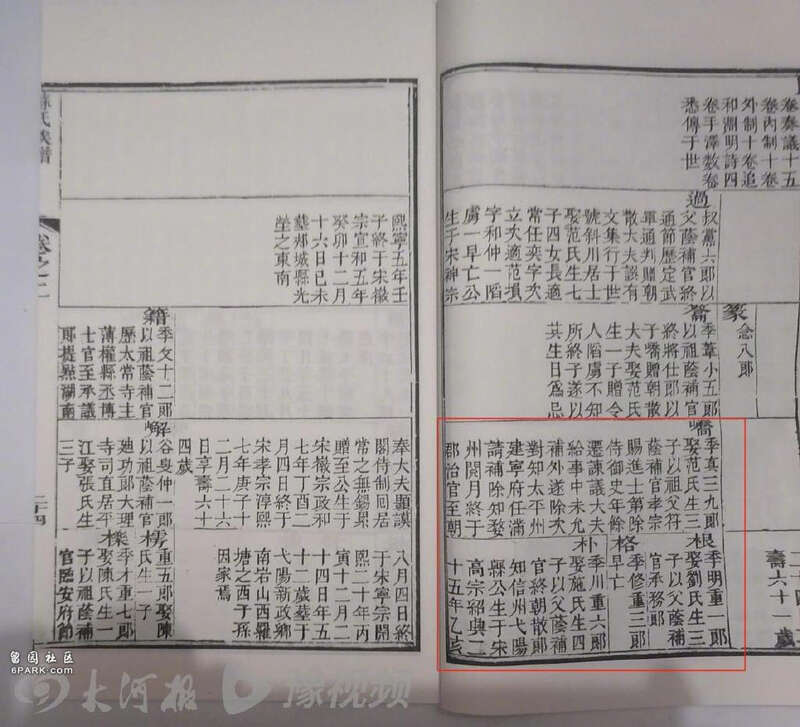 卷奏議十五
卷內制十卷
外制十卷追
和淵明詩四
卷手澤數卷
悉傳于世
過
叔黨六郎以
父蔭補官終
通節歷定武
軍通判贈朝
散大夫誤有
文集行于世
號斜川居士
娶范氏生七
子四女長適
常任奕字次
立次適范塤
字和仲一蹈
虜一早亡公
生于宋神宗
篆
念八郎
籥
季葦小五郎
以祖蔭補官
終將仕郎以
子嶠贈朝散
大夫娶范氏
生一子贈令
人蹈虜不知
所終子遂以
其生日為忌
嶠
季真三九郎
娶范氏生三
子以祖父符
蔭補官孝宗
賜進士第除
侍御史年餘
遷諫議大夫
給事中未允
補外遂除次
對知太平州
建寧府任滿
請補除知婺
州閱月終于
郡治官至朝
壽六十一歲
根
季明重一郎
娶劉氏生三
子以父蔭補
官承務郎
格
季修重三郎
早亡
朴
季川重六郎
娶施氏生四
子以父蔭補
官終朝散郎
知信州弋陽
縣公生于宋
高宗紹興二
十五年乙亥
熙寧五年壬
子終于宋徽
宗宣和五年
癸卯十二月
十六日己未
墓郟城縣光
塋之東南
籍
季文十二郎
以祖蔭補官
歷太常寺主
薄權縣丞傳
士官至承議
郎提點湖南
奉大夫顯謨
閣侍制囘居
常之無錫累
贈至公生于
宋徽宗政和
七年丁酉二
月四日終于
宋孝宗淳熙
七年庚子十
二月二十六
日享壽六十
四歲
嶰
谷叟仲一郎
以祖蔭補官
廸功郎大理
寺司直居平
江娶張氏生
三子
八月四日終
于宋寧宗開
熙二十年丙
寅十二月二
十四日年五
十二歲墓于
弋陽新政鄉
南岩山西羅
塘之西于孫
因家焉
重五郎娶陳
氏生一子
季才重七郎
娶陳氏生一
子以祖蔭補
官臨安府節
氏族譜
卷之二
二十四
留园社区
6PARK.COM
大河报
豫视频